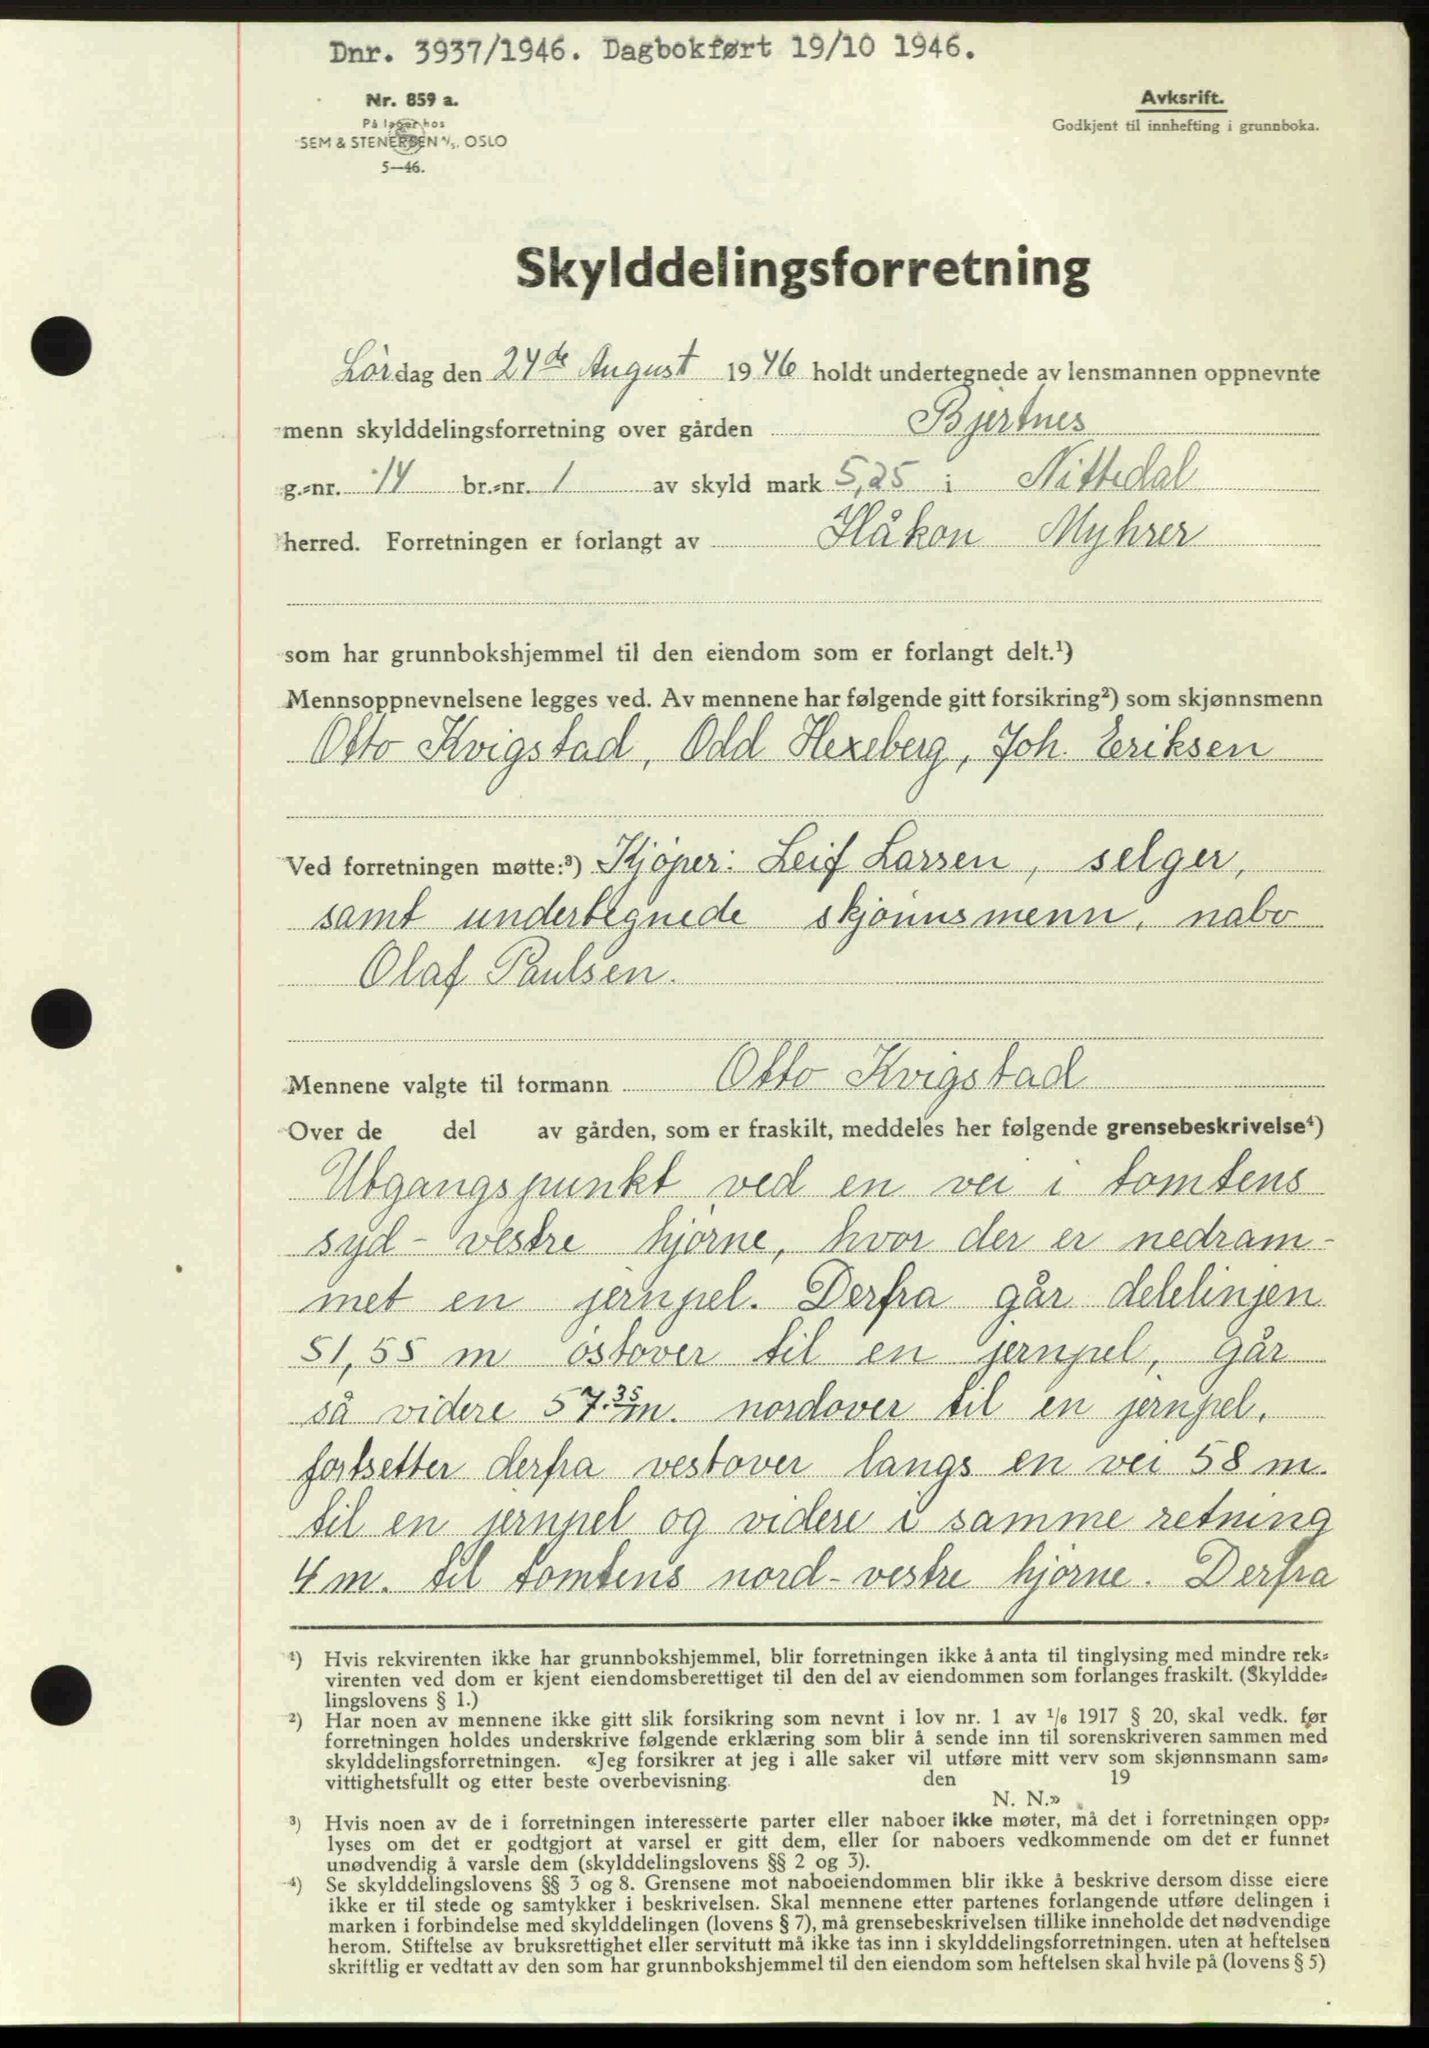 Dnr. 3937/1946. Dagbokført 19/10 1946.
Nr. 859 a.
På lager hos
SEM & STENERSEN A/S, OSLO
5—46.
Avksrift.
Godkjent til innhefting i grunnboka.
Skylddelingsforretning
Lørdag den 24de August 1946 holdt undertegnede av lensmannen oppnevnte
menn skylddelingsforretning over gården Bjertnes
g.=nr. 14 br.=nr. 1 av skyld mark 5,25 i Nittedal
herred. Forretningen er forlangt av Håkon Myhrer
som har grunnbokshjemmel til den eiendom som er forlangt delt.¹)
Mennsoppnevnelsene legges ved. Av mennene har følgende gitt forsikring²) som skjønnsmenn
Otto Kvigstad, Odd Hexeberg, Joh. Eriksen
Ved forretningen møtte:³) Kjøper: Leif Larsen, selger,
samt undertegnede skjønnsmenn, nabo
Olaf Paulsen.
Mennene valgte til formann Otto Kvigstad
Over de del av gården, som er fraskilt, meddeles her følgende grensebeskrivelse⁴)
Utgangspunkt ved en vei i tomtens
syd - vestre hjørne, hvor der er nedram-
met en jernpel. Derfra går delelinjen
51,55 m østover til en jernpel, går
så videre 57.35 m. nordover til en jernpel,
fortsetter derfra vestover langs en vei 58 m.
til en jernpel og videre i samme retning
4 m. til tomtens nord-vestre hjørne. Derfra
¹) Hvis rekvirenten ikke har grunnbokshjemmel, blir forretningen ikke å anta til tinglysing med mindre rek=
virenten ved dom er kjent eiendomsberettiget til den del av eiendommen som forlanges fraskilt. (Skyldde=
lingslovens § 1.)
²) Har noen av mennene ikke gitt slik forsikring som nevnt i lov nr. 1 av 1/6 1917 § 20, skal vedk. før
forretningen holdes underskrive følgende erklæring som blir å sende inn til sorenskriveren sammen med
skylddelingsforretningen. «Jeg forsikrer at jeg i alle saker vil utføre mitt verv som skjønnsmann sam=
vittighetsfullt og etter beste overbevisning. den 19
N. N.»
³) Hvis noen av de i forretningen interesserte parter eller naboer ikke møter, må det i forretningen opp=
lyses om det er godtgjort at varsel er gitt dem, eller for naboers vedkommende om det er funnet
unødvendig å varsle dem (skylddelingslovens §§ 2 og 3).
⁴) Se skylddelingslovens §§ 3 og 8. Grensene mot naboeiendommen blir ikke å beskrive dersom disse eiere
ikke er til stede og samtykker i beskrivelsen. Skal mennene etter partenes forlangende utføre delingen i
marken i forbindelse med skylddelingen (lovens § 7), må grensebeskrivelsen tillike inneholde det nødvendige
herom. Stiftelse av bruksrettighet eller servitutt må ikke tas inn i skylddelingsforretningen. uten at heftelsen
skriftlig er vedtatt av den som har grunnbokshjemmel til den eiendom som heftelsen skal hvile på (lovens § 5)